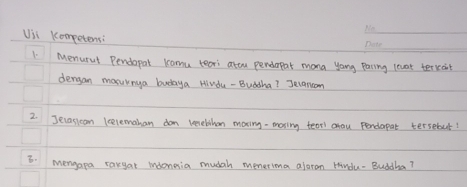 No
Date
Uji Kompetensi
1. Menurut Pendapat kamu teori atau pendapat mana yang paling kuat terkait
dengan masuknya budaya Hindu - Buddha? Jelaskan
2. Jelaskan kelemahan dan kelebihan masing - masing teori atau Pendapat tersebut!
3. Mengapa rakyat Indonesia mudah menerima ajaran Hindu - Buddha?